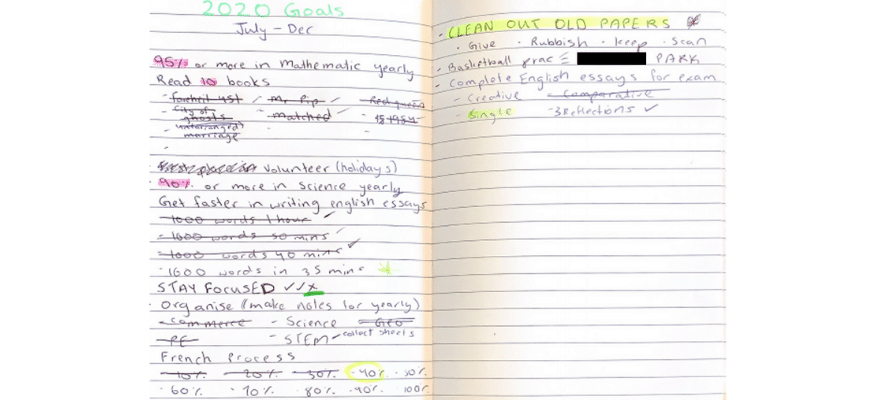 2020 Goals
July - Dec
95% or more in Mathematic yearly
Read 10 books
- Mr Pip
- City of ghosts - matched - 1984
- unarranged marriage
-
Volunteer (holidays)
90% or more in Science yearly
Get faster in writing english essays
- 1000 words 1 hour ✓
- 1600 words 50 mins ✓
- 1000 words 40 mins ✓
- 1600 words in 35 mins
STAY FOCUSED ✓✓x
· Organise (make notes for yearly)
- Commerce - Science - Geo
- PE - STEM - collect sheets
French Process
- 10% - 20% - 30% · 40% · 50%
· 60% · 70% · 80% · 90% · 100%
· CLEAN OUT OLD PAPERS
· Give · Rubbish · keep · Scan
- Basketball prac PARK
- Complete English essays for exam
- Creative - Comparative
- Single - 3 Reflections ✓